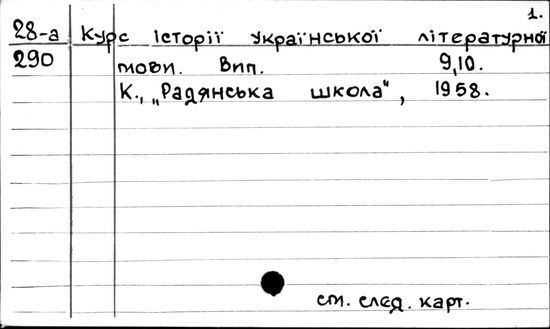 1.
28-а Курс історії української літературної
290 мови. Вип. 9,10.
К., „Радянська школа", 1958.
см. след. карт.